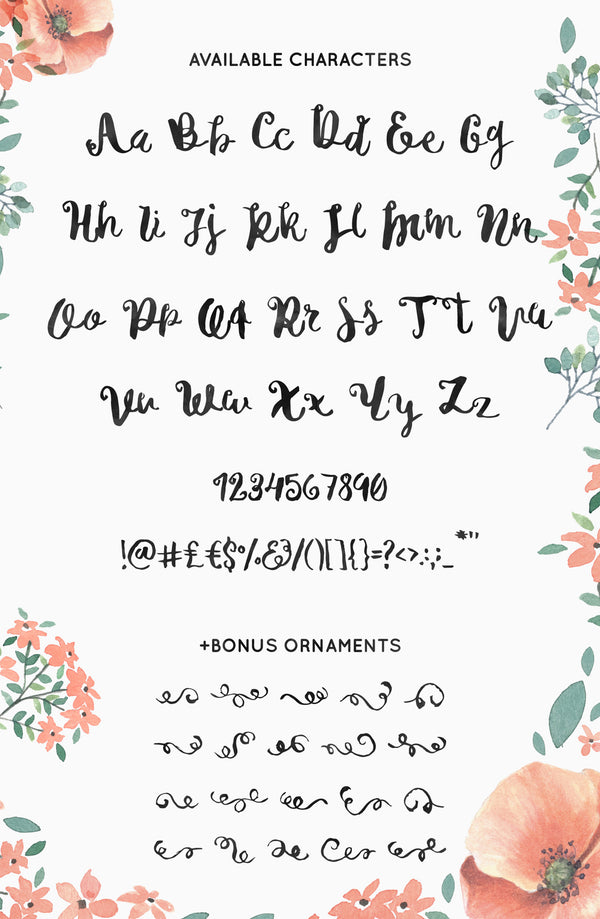 AVAILABLE CHARACTERS
Aa Bb Cc Dd Ee Gg
Hh Ii Jj Kk Ll Mm Nn
Oo Pp Qq Rr Ss Tt Uu
Vv Ww Xx Yy Zz
1234567890
!@#£€$%&3/()[]{}=?<>.:,;_*'"
+BONUS ORNAMENTS